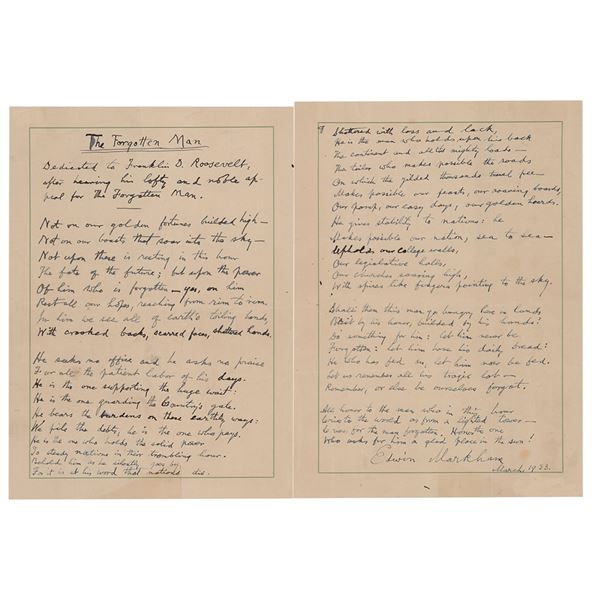 The Forgotten Man
Dedicated to Franklin D. Roosevelt,
after hearing his lofty and noble ap-
peal for the Forgotten Man.
Not on our golden fortunes builded high—
Not on our boasts that soar into the sky—
Not upon these is resting in this hour
The fate of the future; but upon the power
Of him who is forgotten—yes, on him
Rest all our hopes, reaching from rim to rim.
In him we see all of earth's toiling bands,
With crooked backs, scarred faces, shattered hands.
He seeks no office and he asks no praise
For all the patient labor of his days.
He is the one supporting the huge weight:
He is the one guarding the Country's gate.
He bears the burdens on these earthly ways:
He pays the debts, he is the one who pays.
He is the one who holds the solid power
To steady nations in their trembling hour.
Behold him as he silently goes by,
For it is at his word that nations die.
Shattered with loss and lack,
He is the man who holds upon his back
The continent and all its mighty loads—
The toiler who makes possible the roads
On which the gilded thousands travel free—
Makes possible our feasts, our roaring boards,
Our pomp, our easy days, our golden hoards.
He gives stability to nations: he
Makes possible our nation, sea to sea—
Upholds our college walls,
Our legislative halls,
Our churches soaring high,
With spires like fingers pointing to the sky.
Shall then this man go hungry, here in lands
Blest by his honor, builded by his hands?
Do something for him: let him never be
Forgotten: let him have his daily bread:
He who has fed us, let him now be fed.
Let us remember all his tragic lot—
Remember, or else be ourselves forgot.
All honor to the man who in this hour
Cries to the world as from a lighted tower—
Cries for the man forgotten. Honor the one
Who asks for him a glad place in the sun!
Edwin Markham
March, 1933.